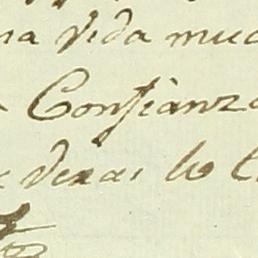 na vida muc
Confianza
dexas lo